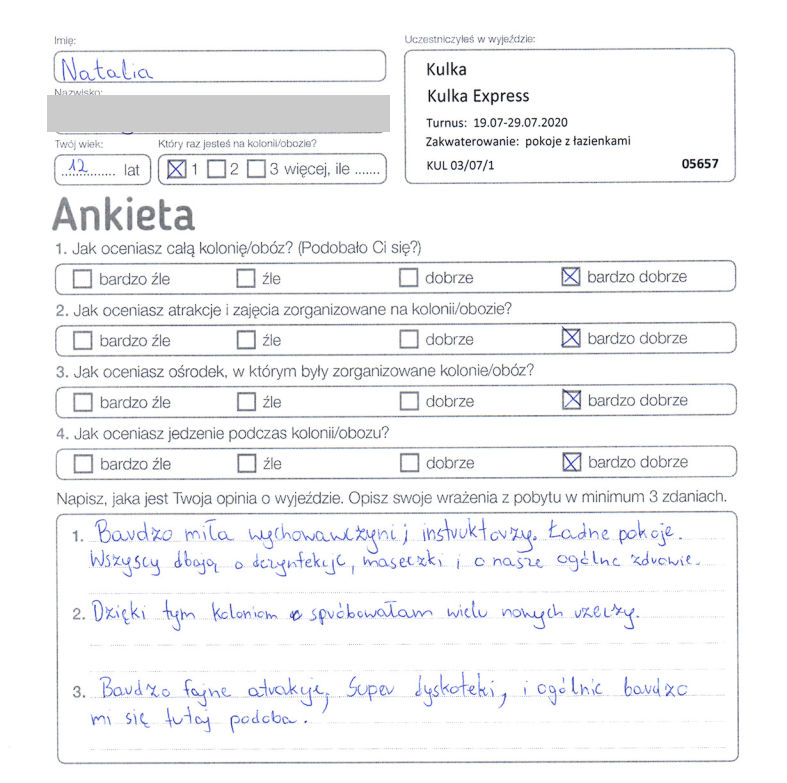 Imię:
Natalia
Nazwisko:
Twój wiek:
12 lat
Który raz jesteś na kolonii/obozie?
1 2 3 więcej, ile .......
Uczestniczyłeś w wyjeździe:
Kulka
Kulka Express
Turnus: 19.07-29.07.2020
Zakwaterowanie: pokoje z łazienkami
KUL 03/07/1 05657
Ankieta
1. Jak oceniasz całą kolonię/obóz? (Podobało Ci się?)
bardzo źle źle dobrze bardzo dobrze
2. Jak oceniasz atrakcje i zajęcia zorganizowane na kolonii/obozie?
bardzo źle źle dobrze bardzo dobrze
3. Jak oceniasz ośrodek, w którym były zorganizowane kolonie/obóz?
bardzo źle źle dobrze bardzo dobrze
4. Jak oceniasz jedzenie podczas kolonii/obozu?
bardzo źle źle dobrze bardzo dobrze
Napisz, jaka jest Twoja opinia o wyjeździe. Opisz swoje wrażenia z pobytu w minimum 3 zdaniach.
1. Bardzo miła wychowawczyni i instruktorzy. Ładne pokoje.
Wszyscy dbają o dezynfekcje, maseczki i o nasze ogólne zdrowie.
2. Dzięki tym koloniom spróbowałam wielu nowych rzeczy.
3. Bardzo fajne atrakcje, Super dyskoteki, i ogólnie bardzo
mi się tutaj podoba.